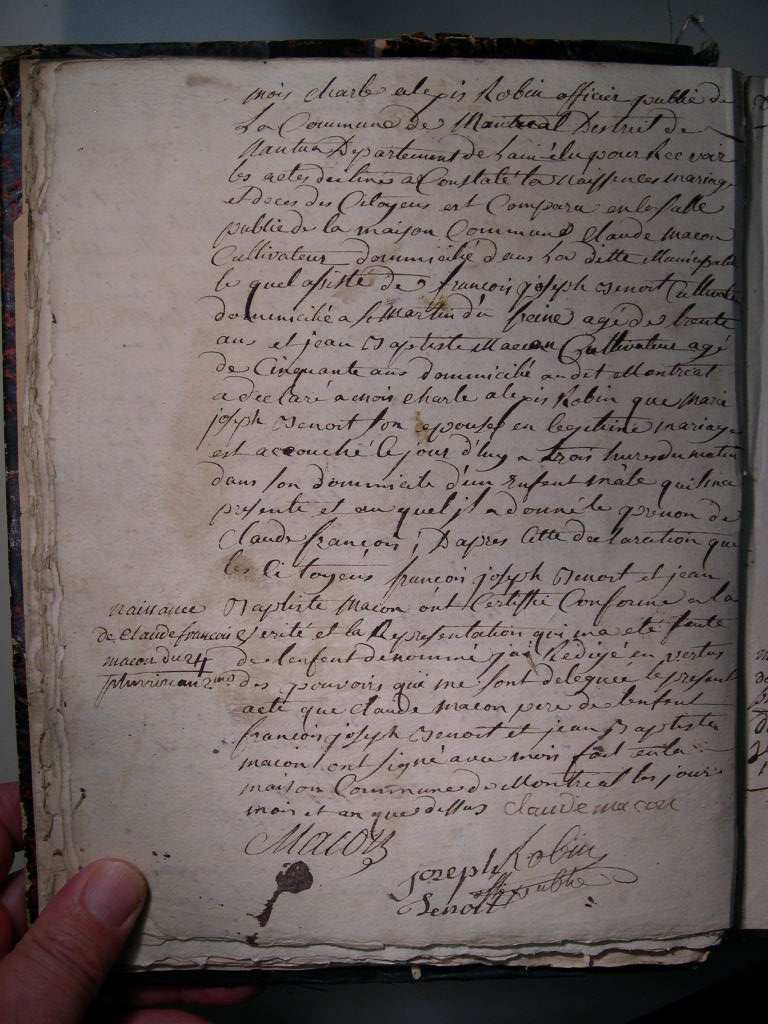 mois charle alexis Robin officier public de
La Commune de Montreal District de
Nantua Departement de Lain élu pour Recevoir
les actes destinés a Constaté la Naissences mariage
et deces des Citoyens est Comparu en la Salle
public de la maison Commune Claude Macon
Cultivateur doumicilié dans La ditte Municipalité
le quel assisté de françois joseph Benoit Cultivateur
doumicilié a St Martin du freine agé de trente
ans et jean Baptiste Macon Cultivateur agé
de Cinquante ans doumicilié audit Montreal
a declaré a mois charle alexis Robin que Marie
joseph Benoit Son epouse en legitime mariage
est accouché le jour d'huy a trois hures du matin
dans son doumicile d'un Enfent mâle quil ma
présenté et au quel jl a donné le prenon de
Claude françois ; D'apres Cette declaration que
les Citoyens françois joseph Benoit et jean
Baptiste Macon ont Certiffié Conforme a la
Verité et la Représentation qui ma eté faite
de l'enfent denommé j'ai Rédigé en vertus
des pouvoirs qui me sont delegués le présent
acte que Claude Macon pere de l'enfent
françois joseph Benoit et jean Baptiste
macon ont signé avec mois fait en la
maison Commune de Montreal les jour
mois et an que dessus Claude macon
naissance
de Claude francois
macon du 24
pluviose an 2me
Macon
joseph Robin
Benoit off public